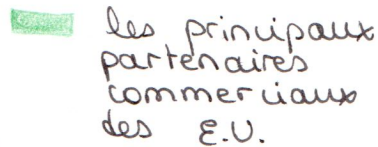 les principaux
partenaires
commerciaux
des E.U.